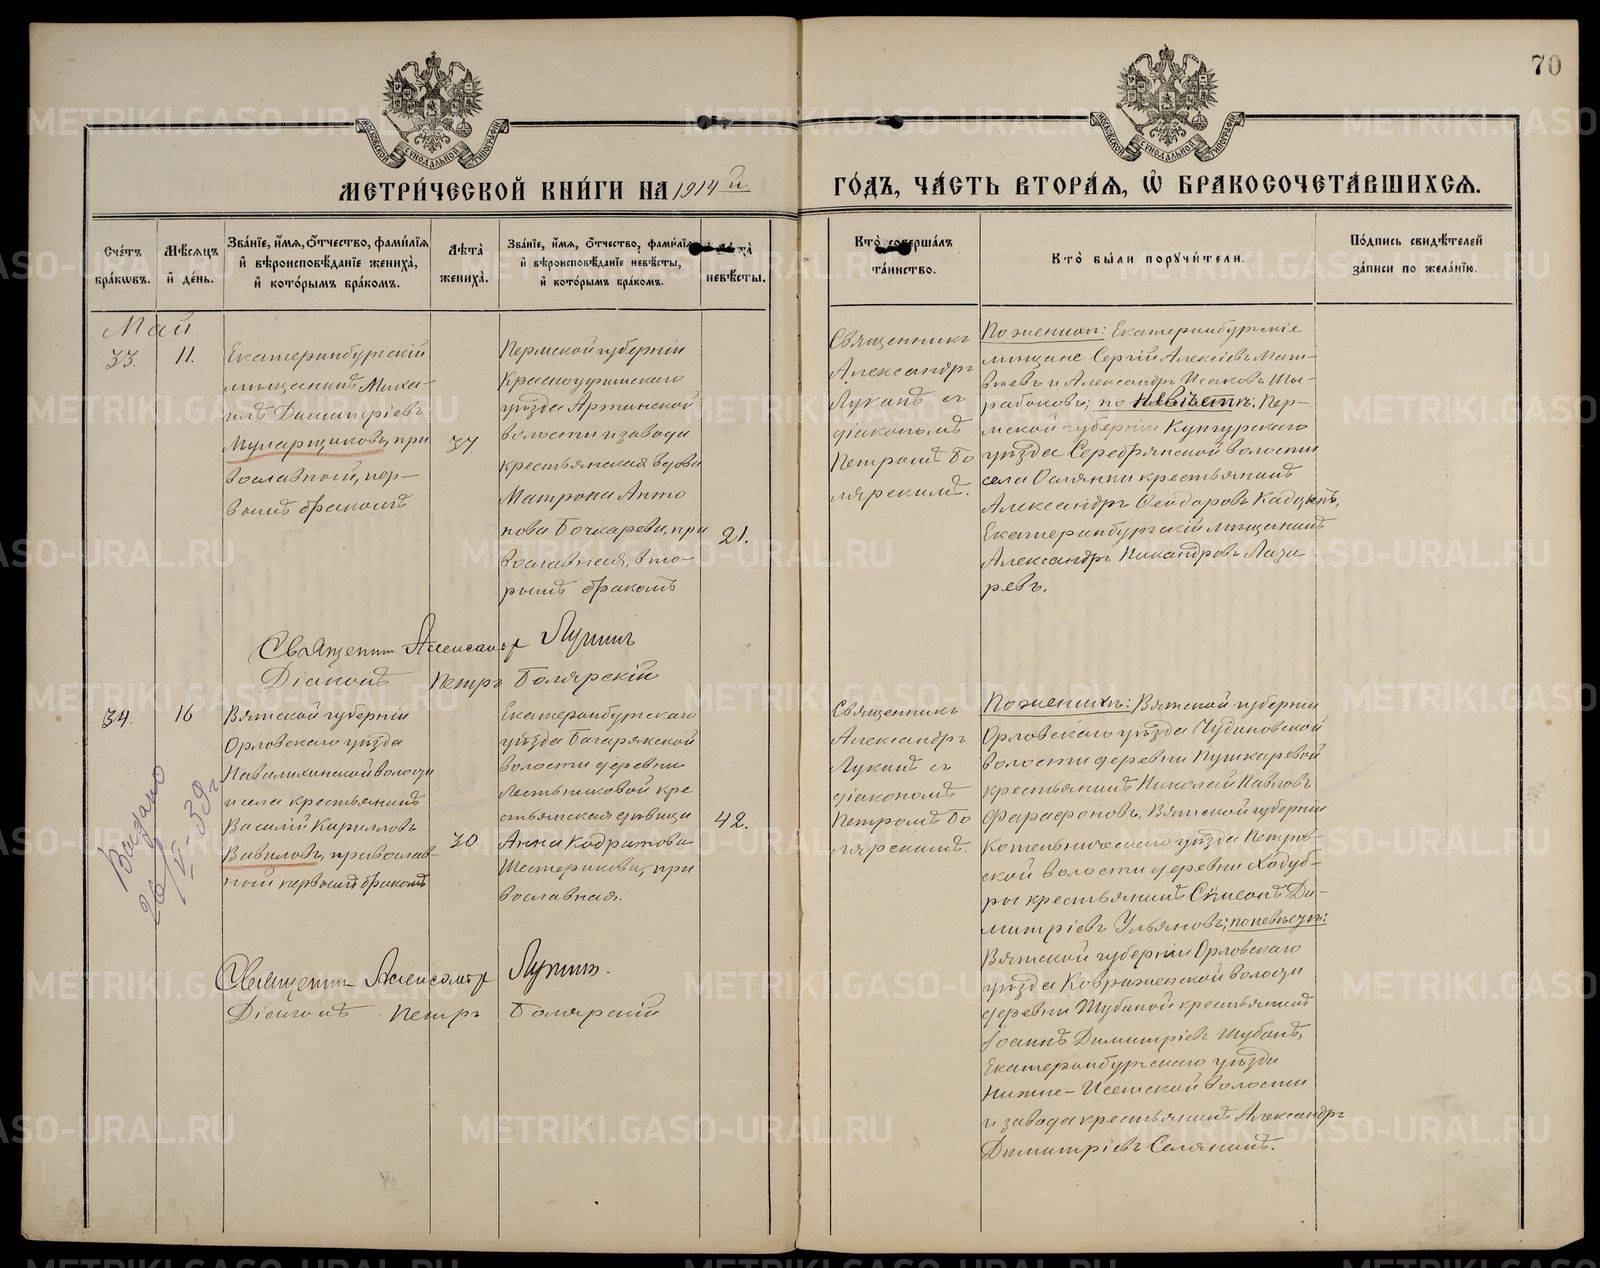 70
МЕТРИЧЕСКОЙ КНИГИ НА 1914 й ГОДЪ, ЧАСТЬ ВТОРАЯ, Ѽ БРАКОСОЧЕТАВШИХСЯ.
Счетъ браковъ.
Мѣсяцъ и день.
Званіе, имя, отчество, фамилія и вѣроисповѣданіе жениха, и которымъ бракомъ.
Лѣта жениха.
Званіе, имя, отчество, фамилія и вѣроисповѣданіе невѣсты, и которымъ бракомъ.
невѣсты.
Кто совершалъ таинство.
Кто были поручители.
Подпись свидѣтелей записи по желанію.
Май
33.
11.
Екатеринбургскій
мѣщанинъ Миха-
илъ Димитріевъ
Муларщиковъ, пра
вославный, пер-
вымъ бракомъ
37.
Пермской губерніи
Красноуфимскаго
уѣзда Артинской
волости и завода
крестьянская вдова
Матрона Анто
нова Бочкарева, пра
вославная, вто-
рымъ бракомъ
21.
Священникъ
Александръ
Лукинъ съ
діакономъ
Петромъ Бо
лярскимъ.
По женихѣ: Екатеринбургскіе
мѣщане Сергій Алексіевъ Мат-
вѣевъ и Александръ Исаковъ Ша-
рабоковъ; по невѣстѣ: Пер-
мской губерніи Кунгурскаго
уѣзда Серебрянской волости
села Ослянки крестьянинъ
Александръ Ѳеодоровъ Кадцынъ,
Екатеринбургскій мѣщанинъ
Александръ Никандровъ Лаза
ревъ.
Священник Александр Лукинъ
Діаконъ Петръ Болярскій
34.
16
Вятской губерніи
Орловскаго уѣзда
Навалихинской волости
и села крестьянинъ
Василій Кирилловъ
Вавиловъ, православ-
ный первымъ бракомъ
30
Екатеринбургскаго
уѣзда Багарякской
волости деревни
крестьянская дѣвица
Анна Кодратова
Шестерикова, пра
вославная.
42.
Священникъ
Александръ
Лукинъ съ
діакономъ
Петромъ Бо
лярскимъ.
По женихѣ: Вятской губерніи
Орловскаго уѣзда Чудиновской
волости деревни Пушкаревой
крестьянинъ Николай Павловъ
Фарафоновъ, Вятской губерніи
Котельническаго уѣзда Петров-
ской волости деревни
крестьянинъ Сѵмеонъ Ди-
митріевъ Ульяновъ; по невѣстѣ:
Вятской губерніи Орловскаго
уѣзда волости
деревни Шубиной крестьянинъ
Іоаннъ Димитріевъ Шубинъ,
Екатеринбургскаго уѣзда
Нижне-Исетской волости
и завода крестьянинъ Александръ
Димитріевъ Селянинъ.
Выдано
26/V-39 г
Священник Александр Лукинъ.
Діаконъ Петръ Болярскій
METRIKI.GASO-URAL.RU